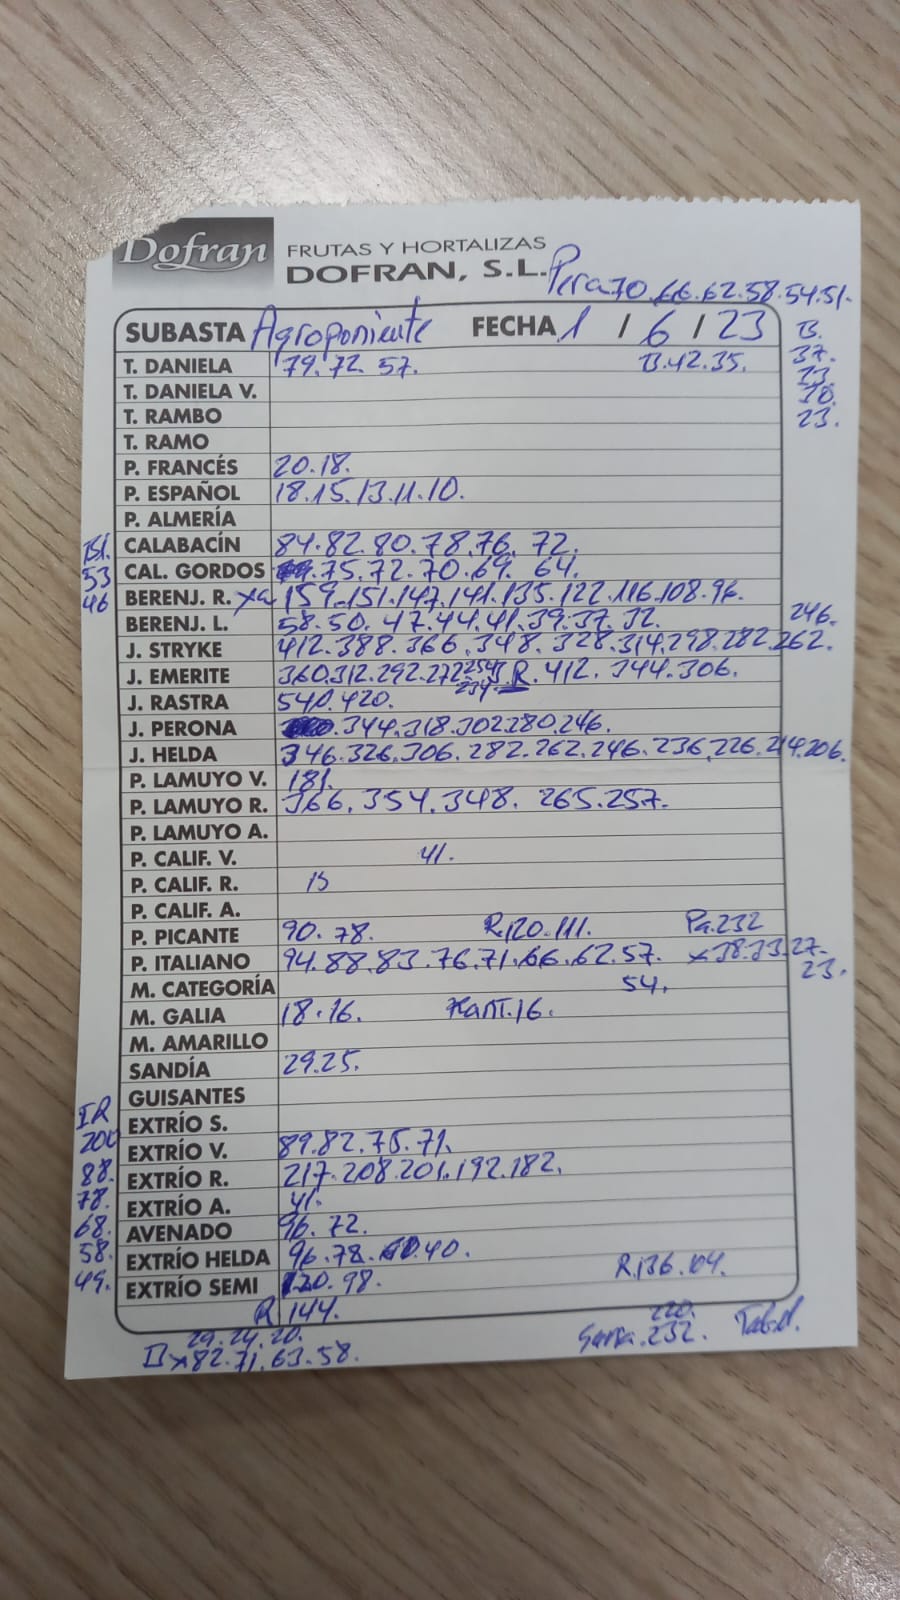 Dofran FRUTAS Y HORTALIZAS
DOFRAN, S.L. Pera 70.66.62.58.54.51.
SUBASTA Agroponiente FECHA 1 / 6 / 23 B.
T. DANIELA 79.72.57. B.42.35. 37.
T. DANIELA V.
T. RAMBO 23.
T. RAMO
P. FRANCÉS 20.18.
P. ESPAÑOL 18.15.13.11.10.
P. ALMERÍA
CALABACÍN 84.82.80.78.76.72.
53 CAL. GORDOS 75.72.70.69.64.
46 BERENJ. R. 159.151.147.141.135.122.116.108.96.
BERENJ. L. 58.50.47.44.41.39.37.32. 246.
J. STRYKE 412.388.366.348.328.314.298.282.262.
J. EMERITE 360.312.292.272.254.234. R.412.344.306.
J. RASTRA 540.420.
J. PERONA 344.318.302.280.246.
J. HELDA 346.326.306.282.262.246.236.226.214.206.
P. LAMUYO V. 181.
P. LAMUYO R. 366.354.348.265.257.
P. LAMUYO A.
P. CALIF. V. 41.
P. CALIF. R.
P. CALIF. A.
P. PICANTE 90.78. R.120.111. Pa.232
P. ITALIANO 94.88.83.76.71.66.62.57. x38.33.27.
M. CATEGORÍA 54. 23.
M. GALIA 18.16. 16.
M. AMARILLO
SANDÍA 29.25.
GUISANTES
EXTRÍO S.
EXTRÍO V. 89.82.75.71.
88. EXTRÍO R. 217.208.201.192.182.
78. EXTRÍO A. 41.
68. AVENADO 96.72.
58. EXTRÍO HELDA 96.78.40.
49. EXTRÍO SEMI 120.98. R.136.104.
R 144.
29.24.20. 220.
x82.71.63.58. 232.